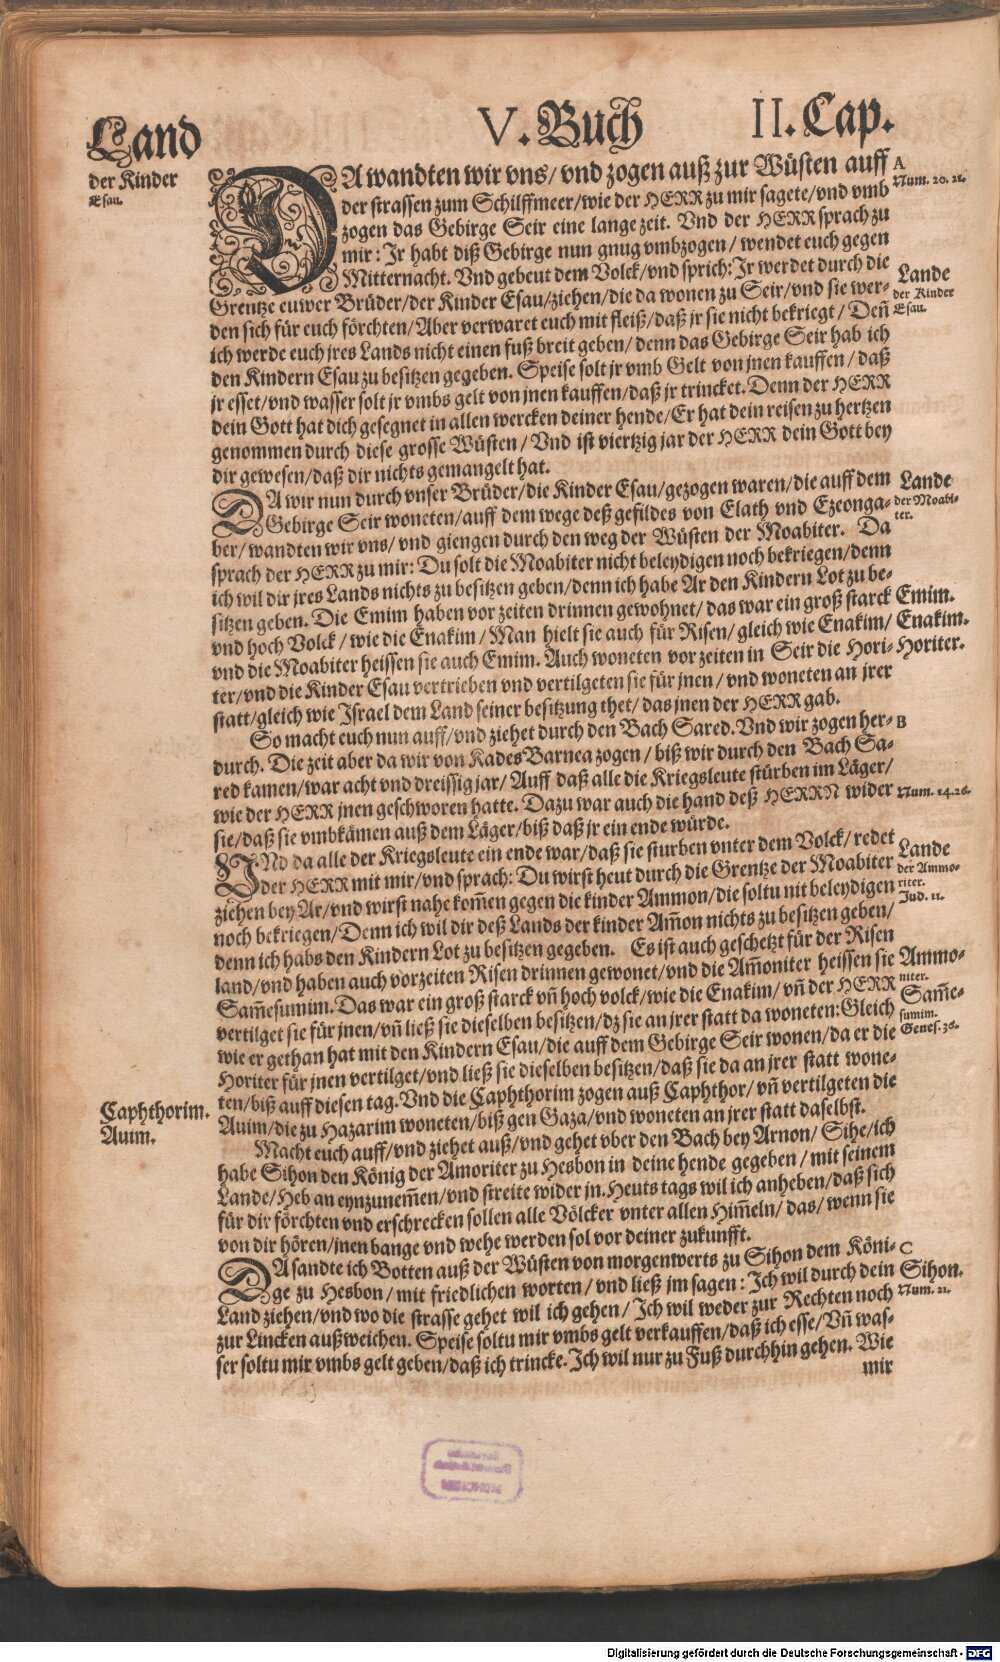 Land
der Kinder
Esau.
V. Buch
II. Cap.
DA wandten wir vns/ vnd zogen auß zur Wüsten auff
der strassen zum Schilffmeer/wie der HERR zu mir sagete/vnd vmb
zogen das Gebirge Seir eine lange zeit. Vnd der HERR sprach zu
mir: Ir habt diß Gebirge nun gnug vmbzogen/ wendet euch gegen
Mitternacht. Vnd gebeut dem Volck/vnd sprich: Ir werdet durch die
Grentze euwer Brüder/der Kinder Esau/ziehen/die da wonen zu Seir/vnd sie wer-
den sich für euch förchten/Aber verwaret euch mit fleiß/daß jr sie nicht bekriegt/ Deñ
ich werde euch jres Lands nicht einen fuß breit geben/ denn das Gebirge Seir hab ich
den Kindern Esau zu besitzen gegeben. Speise solt jr vmb Gelt von jnen kauffen/ daß
jr esset/vnd wasser solt jr vmbs gelt von jnen kauffen/daß jr trincket. Denn der HERR
dein Gott hat dich gesegnet in allen wercken deiner hende/Er hat dein reisen zu hertzen
genommen durch diese grosse Wüsten/ Vnd ist viertzig jar der HERR dein Gott bey
dir gewesen/daß dir nichts gemangelt hat.
DA wir nun durch vnser Brüder/die Kinder Esau/gezogen waren/die auff dem
Gebirge Seir woneten/auff dem wege deß gefildes von Elath vnd Ezeonga-
ber/wandten wir vns/ vnd giengen durch den weg der Wüsten der Moabiter. Da
sprach der HERR zu mir: Du solt die Moabiter nicht beleydigen noch bekriegen/denn
ich wil dir jres Lands nichts zu besitzen geben/denn ich habe Ar den Kindern Lot zu be-
sitzen geben. Die Emim haben vor zeiten drinnen gewohnet/ das war ein groß starck
vnd hoch Volck/ wie die Enakim/ Man hielt sie auch für Risen/ gleich wie Enakim/
vnd die Moabiter heissen sie auch Emim. Auch woneten vor zeiten in Seir die Hori-
ter/vnd die Kinder Esau vertrieben vnd vertilgeten sie für jnen/ vnd woneten an jrer
statt/gleich wie Israel dem Land seiner besitzung thet/ das jnen der HERR gab.
So macht euch nun auff/vnd ziehet durch den Bach Sared. Vnd wir zogen her-
durch. Die zeit aber da wir von Kades Barnea zogen/ biß wir durch den Bach Sa-
red kamen/war acht vnd dreissig jar/ Auff daß alle die Kriegsleute stürben im Läger/
wie der HERR jnen geschworen hatte. Dazu war auch die hand deß HERRN wider
sie/daß sie vmbkämen auß dem Läger/biß daß jr ein ende würde.
VNd da alle der Kriegsleute ein ende war/daß sie sturben vnter dem Volck/ redet
der HERR mit mir/vnd sprach: Du wirst heut durch die Grentze der Moabiter
ziehen bey Ar/vnd wirst nahe kom̃en gegen die kinder Ammon/die soltu nit beleydigen
noch bekriegen/Denn ich wil dir deß Lands der kinder Am̃on nichts zu besitzen geben/
denn ich habs den Kindern Lot zu besitzen gegeben. Es ist auch geschetzt für der Risen
land/vnd haben auch vorzeiten Risen drinnen gewonet/vnd die Am̃oniter heissen sie
Sam̃esumim. Das war ein groß starck vñ hoch volck/wie die Enakim/ vñ der HERR
vertilget sie für jnen/vñ ließ sie dieselben besitzen/dz sie an jrer statt da woneten: Gleich
wie er gethan hat mit den Kindern Esau/die auff dem Gebirge Seir wonen/da er die
Horiter für jnen vertilget/vnd ließ sie dieselben besitzen/daß sie da an jrer statt wone-
ten/biß auff diesen tag. Vnd die Caphthorim zogen auß Caphthor/ vñ vertilgeten die
Auim/die zu Hazarim woneten/biß gen Gaza/vnd woneten an jrer statt daselbst.
Macht euch auff/vnd ziehet auß/vnd gehet vber den Bach bey Arnon/ Sihe/ich
habe Sihon den König der Amoriter zu Hesbon in deine hende gegeben/ mit seinem
Lande/Heb an eynzunem̃en/vnd streite wider jn. Heuts tags wil ich anheben/daß sich
für dir förchten vnd erschrecken sollen alle Völcker vnter allen Him̃eln/ das/ wenn sie
von dir hören/jnen bange vnd wehe werden sol vor deiner zukunfft.
DA sandte ich Botten auß der Wüsten von morgenwerts zu Sihon dem Köni-
ge zu Hesbon/ mit friedlichen worten/ vnd ließ jm sagen: Ich wil durch dein
Land ziehen/vnd wo die strasse gehet wil ich gehen/ Ich wil weder zur Rechten noch
zur Lincken außweichen. Speise soltu mir vmbs gelt verkauffen/daß ich esse/Vñ was-
ser soltu mir vmbs gelt geben/daß ich trincke. Ich wil nur zu Fuß durchhin gehen. Wie
mir
A
Num. 20. 21.
Lande
der Kinder
Esau.
Lande
der Moabi-
ter.
Emim.
Enakim.
Horiter.
B
Num. 14. 26.
Lande
der Ammo-
riter.
Jud. 11.
Ammo-
niter.
Sam̃e-
sumim.
Genes. 36.
Caphthorim.
Auim.
C
Sihon.
Num. 21.
Digitalisierung gefördert durch die Deutsche Forschungsgemeinschaft - DFG